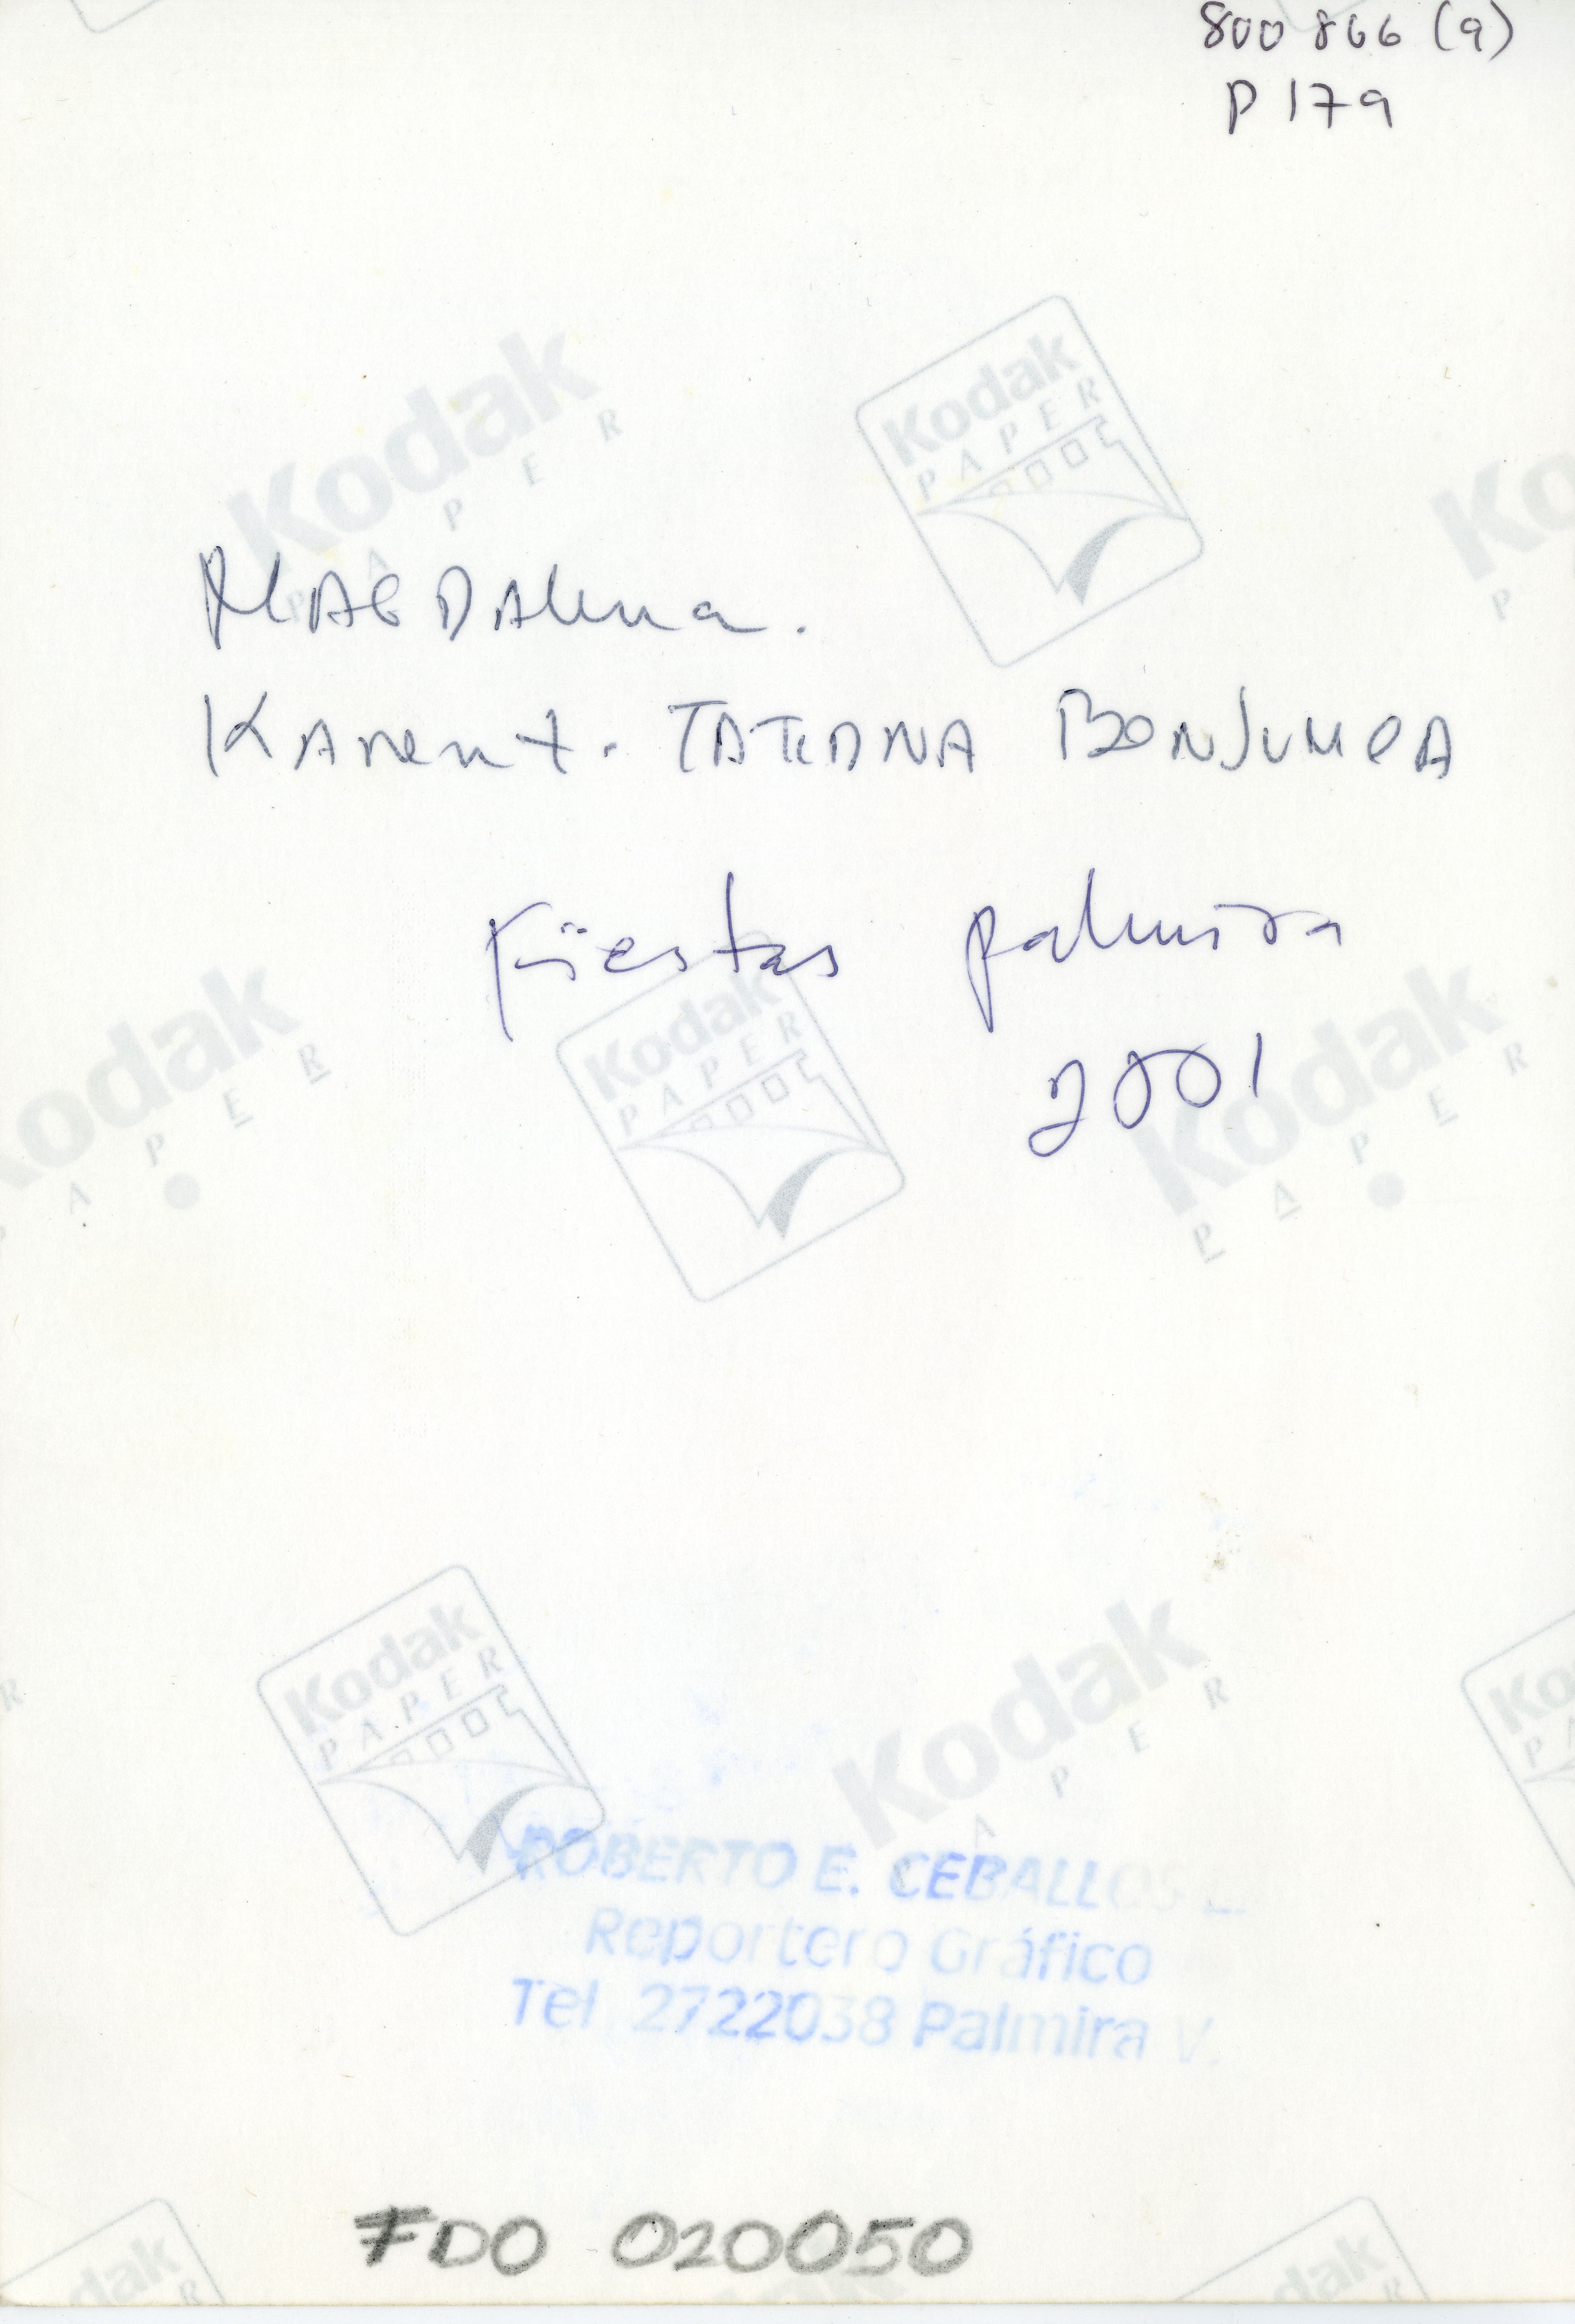 800866 (9)
P 179
Kodak
PAPER
Kodak
PAPER
MAGDAlena.
KAren t. TATIANA BONJUMEA
Fiestas palmira
2001
Kodak
PAPER
Kodak
PAPER
Kodak
PAPER
Kodak
PAPER
Kodak
PAPER
ROBERTO E. CEBALLOS
Reportero Gráfico
Tel. 2722038 Palmira V.
FDO 020050